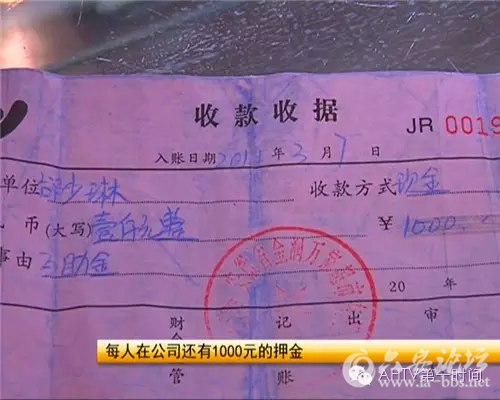 收款收据
JR 0019
入账日期201 年3月7日
单位 琳
收款方式现金
币(大写)壹佰元整
¥ 1000.
事由互助金
20 年
财 记 出 审
管 账
每人在公司还有1000元的押金
六安论坛
AHTV第一时间
www.la-bbs.net